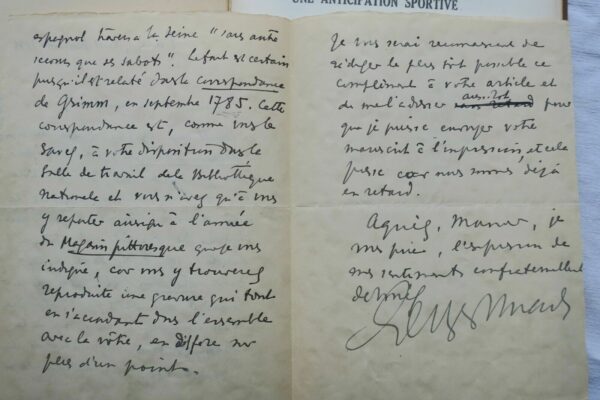 UNE ANTICIPATION SPORTIVE
espagnol traversa la Seine "sans autre
secours que ses sabots". Le fait est certain
puisqu'il est relaté dans la correspondance
de Grimm, en septembre 1785. Cette
correspondance est, comme vous le
savez, à votre disposition dans la
Salle de travail de la Bibliothèque
Nationale et vous n'avez qu'à vous
y reporter ainsi qu'à l'année
du Magasin pittoresque que je vous
indique, car vous y trouverez
reproduite une gravure qui tout
en s'accordant dans l'ensemble
avec la vôtre, en diffère sur
plus d'un point.
Je vous serai reconnaissant de
rédiger le plus tôt possible ce
complément à votre article et
de me l'adresser aussitôt sans retard pour
que je puisse envoyer votre
manuscrit à l'impression et cela
presse car nous sommes déjà
en retard.
Agréez, Monsieur, je
vous prie, l'expression de
mes sentiments confraternellement
dévoués